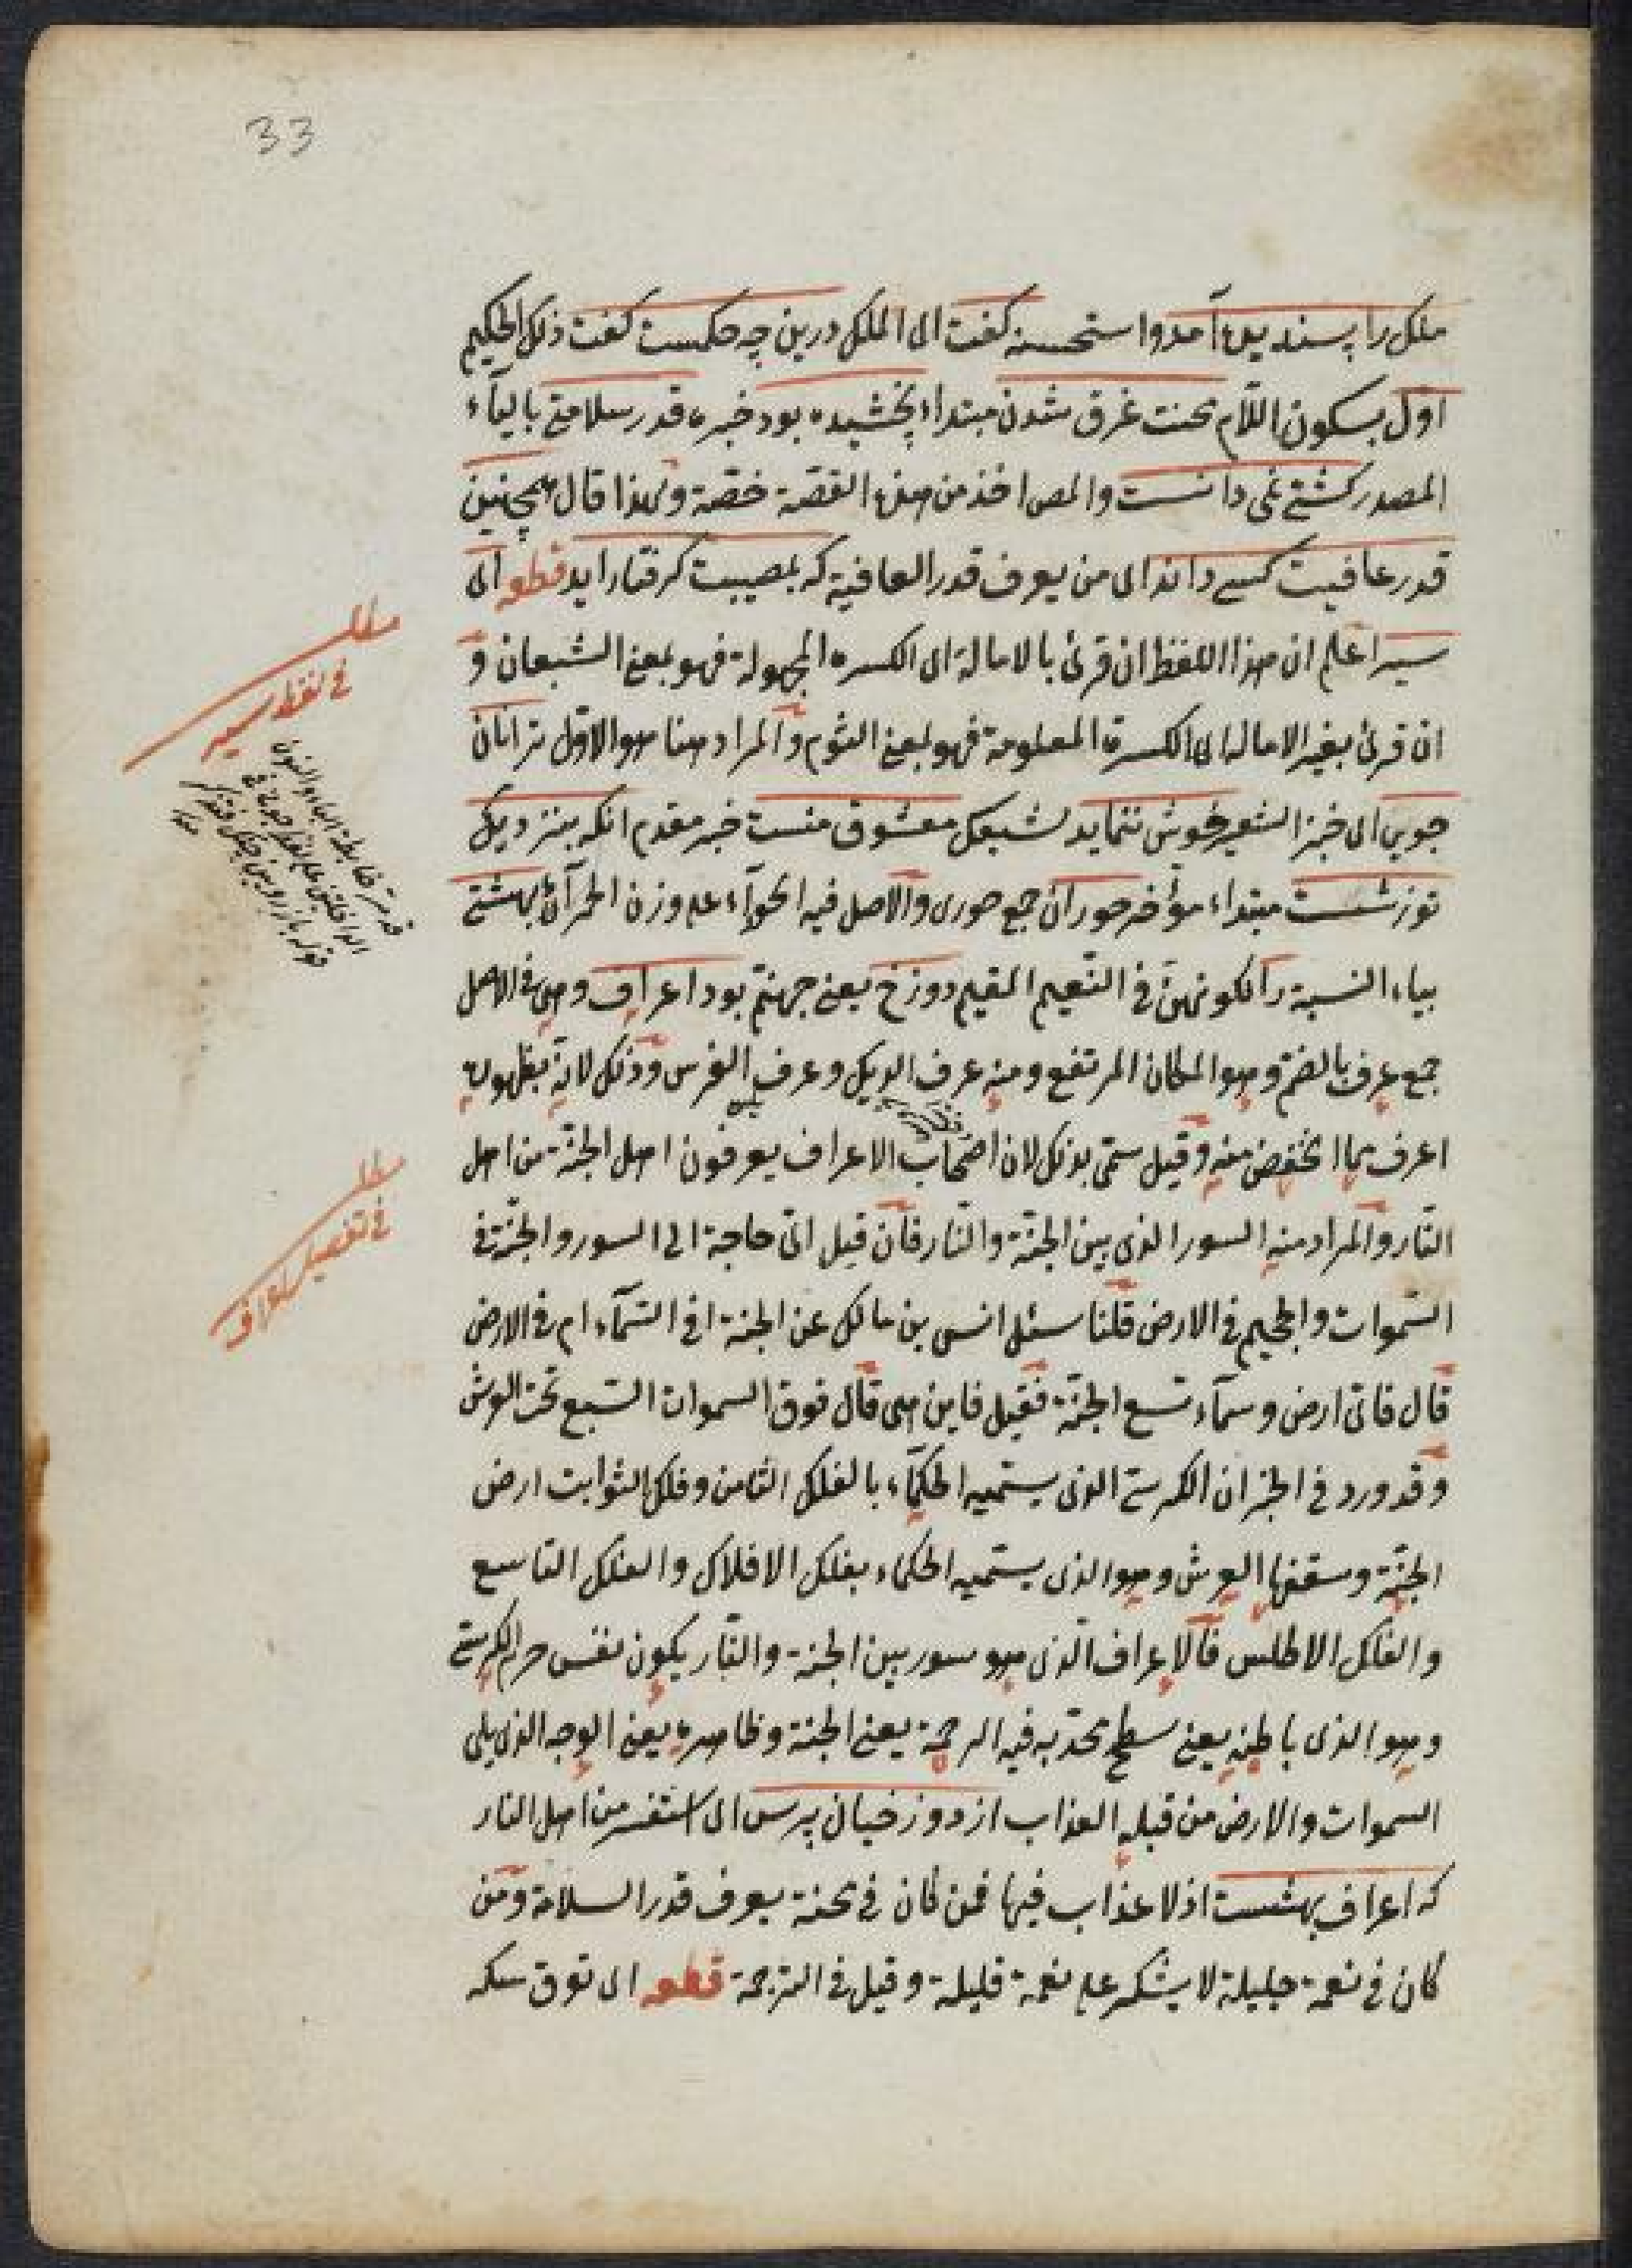 33
ملك را پسنديده آمد واستحسنه كفت اى الملك درين چه حكمست كفت ذلك الحكيم
اول بسكون اللّام محنت غرق شدن مبتداء بخشيده بود خبره قدر سلامتى بالياء
المصدر كشتى نمى دانست والمص اخذ من هذه القصة خصّة ولهذا قال همچنين
قدر عافيت كسى داند اى من يعرف قدر العافية كه بمصيبت كرفتار ايد قطعه اى
سير اعلم ان هذا اللفظ ان قرئ بالامالة اى الكسرة المجهولة فهو بمعنى الشبعان و
ان قرئ بغير الامالة اى الكسرة المعلومة فهو بمعنى الثوم والمراد هنا هو الاوّل ترا نان
جوين اى خبز الشعير خوش ننمايد لشبعك معشوق منست خبر مقدم انكه بنزديك
تو زشتست مبتداء مؤخر حوران جمع حورى والاصل فيه الحوراء على وزن الحمراء بهشتى
بياء النسبة را لكونهنّ فى النّعيم المقيم دوزخ يعنى جهنّم بود اعراف وهى فى الاصل
جمع عرف بالضم وهو المكان المرتفع ومنه عرف الديك وعرف الفرس وذلك لانه بظهوره
اعرف مما انخفض منه وقيل سمّى بذلك لان اصحاب الاعراف يعرفون اهل الجنّة من اهل
النّار والمراد منه السور الذى بين الجنّة والنّار فان قيل اىّ حاجة الى السور والجنّة فى
السّموات والجحيم فى الارض قلنا سئل انس بن مالك عن الجنة افى السّماء ام فى الارض
قال فاىّ ارض وسماء تسع الجنّة فقيل فاين هى قال فوق السموات السّبع تحت العرش
وقد ورد فى الخبر ان الكرسى الذى يسمّيه الحكماء بالفلك الثامن وفلك الثوابت ارض
الجنّة وسقفها العرش وهو الذى يسمّيه الحكماء بفلك الافلاك والفلك التاسع
والفلك الاطلس فالاعراف الّذى هو سور بين الجنة والنّار يكون نفس جرم الكرسى
وهو الذى باطنه يعنى سطح محدّبه فيه الرحمة يعنى الجنة وظاهره يعنى الوجه الذى يلى
السموات والارض من قبله العذاب از دوزخيان پرس اى استفسر من اهل النار
كه اعراف بهشتست اذ لا عذاب فيها فمن كان فى محنة يعرف قدر السلامة ومن
كان فى نعمة جليلة لا يشكر على نعمة قليلة وقيل فى الترجمة قطعه اى توق سكه
مطلب
فى لفظ سير
مطلب
فى تفصيل اعراف